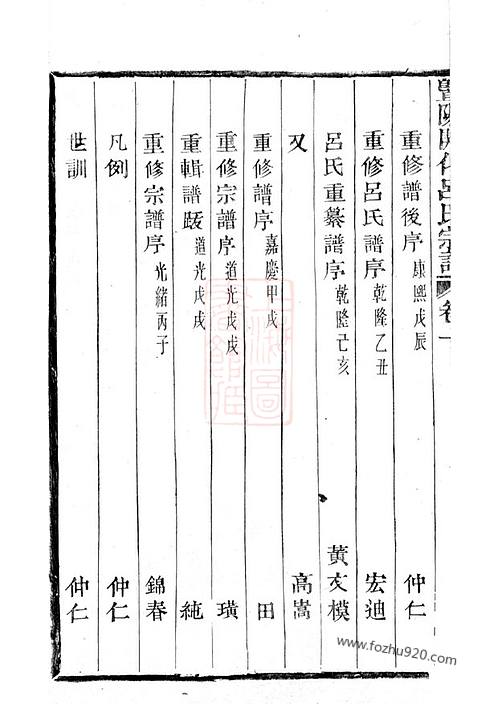 重修譜後序 康熙戊辰 仲仁
重修呂氏譜序 乾隆乙丑 宏迪
呂氏重纂譜序 乾隆己亥 黃文模
又 高嵩
重修譜序 嘉慶甲戌 田
重修宗譜序 道光戊戌 璜
重輯譜跋 道光戊戌 純
重修宗譜序 光緒丙子 錦春
凡例 仲仁
世訓 仲仁
www.fozhu920.com